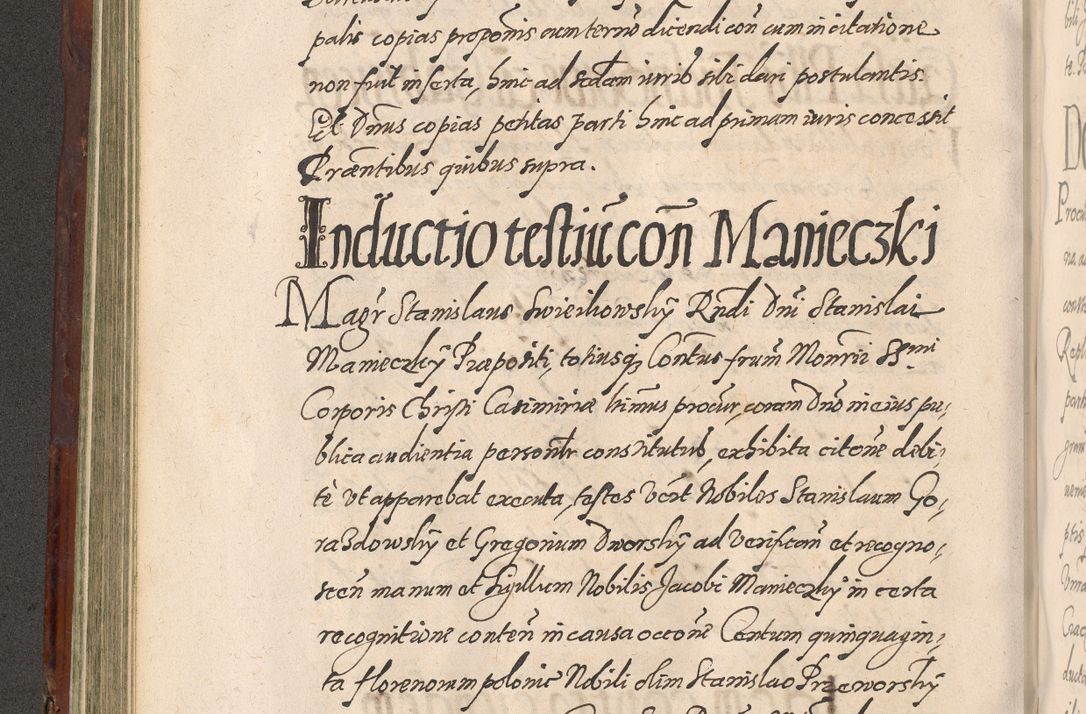 palis copias proponis cum termō dicendi con̄ cum in citatione
non fuit inserta, hinc ad sedam iuris sibi dari postulantis.
Et Dn̄us copias petitas parti hinc ad primam iuris concessit
Præntibus quibus supra.
Inductio testiū con̄ Manieczki
Magr Stanislaus Swieihowskÿ Rndi Dni Stanislai
Manieczkÿ Præpositi, totiusq, Conūtus frum̄ Monrii SSmi
Corporis Christi Casimiriæ ltimus procur, coram Dno in eius pu,
blica audientia personlr constitutus, exhibita citone debi,
tè vt apparebat executa, testes vert Nobiles Stanislaum Go,
razdowskÿ et Gregorium Dworskÿ ad verifican̄ et recogno,
scen̄ manum et sigillum Nobilis Jacobi Manieczkÿ in certa
recognitione conten̄ in causa occone Centum quinquagin,
ta florenorum polonic Nobili olim Stanislao Przeworskÿ